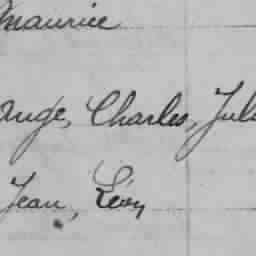 Maurice
ange, Charles, Jul
Jean, Léon